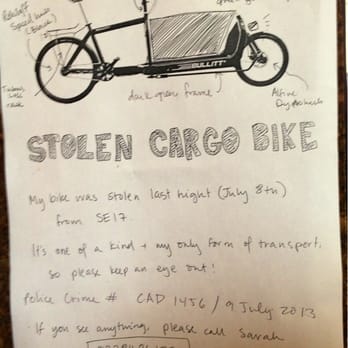 Rohloff
Speed hub
(Black)
rack
BULLITT
dark green frame
Alfine
Dynohub
STOLEN CARGO BIKE
My bike was stolen last night (July 8th)
from SE17.
It's one of a kind + my only form of transport,
so please keep an eye out!
Police Crime # CAD 1456 / 9 July 2013
If you see anything, please call Sarah